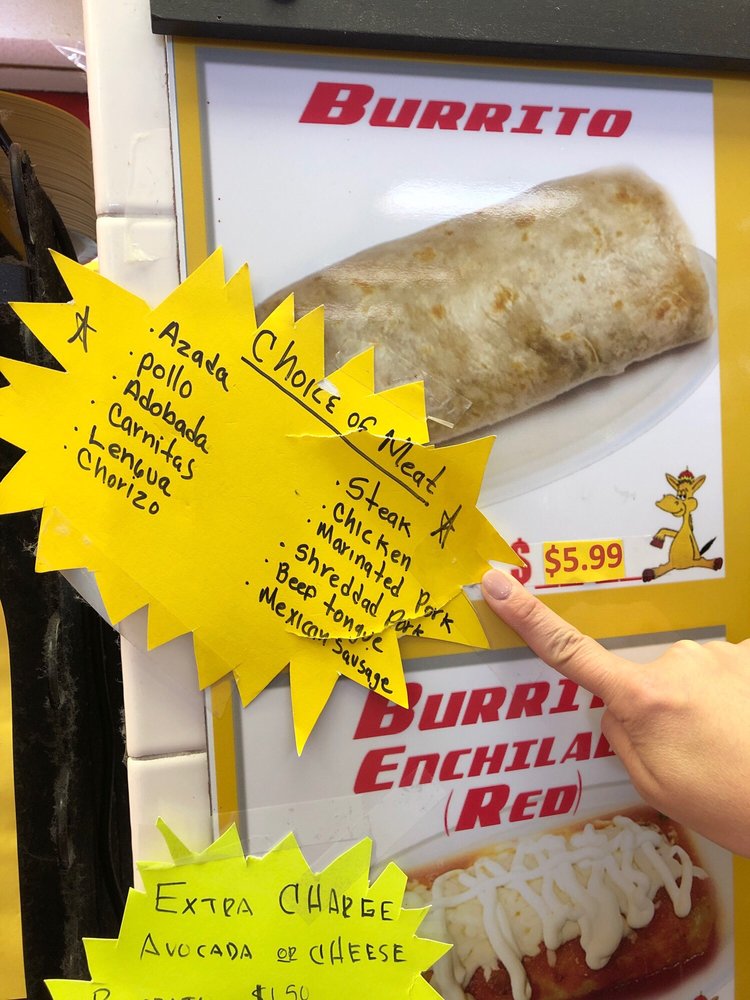 BURRITO
Choice of Meat
· Azada
· pollo
· Adobada
· Carnitas
· Lengua
· Chorizo
· Steak
· Chicken
· Marinated Pork
· Shreddad Pork
· Beef tongue
· Mexican Sausage
$ $5.99
BURRI
ENCHILA
(RED)
EXTRA CHARGE
AVOCADA OR CHEESE
$1.50